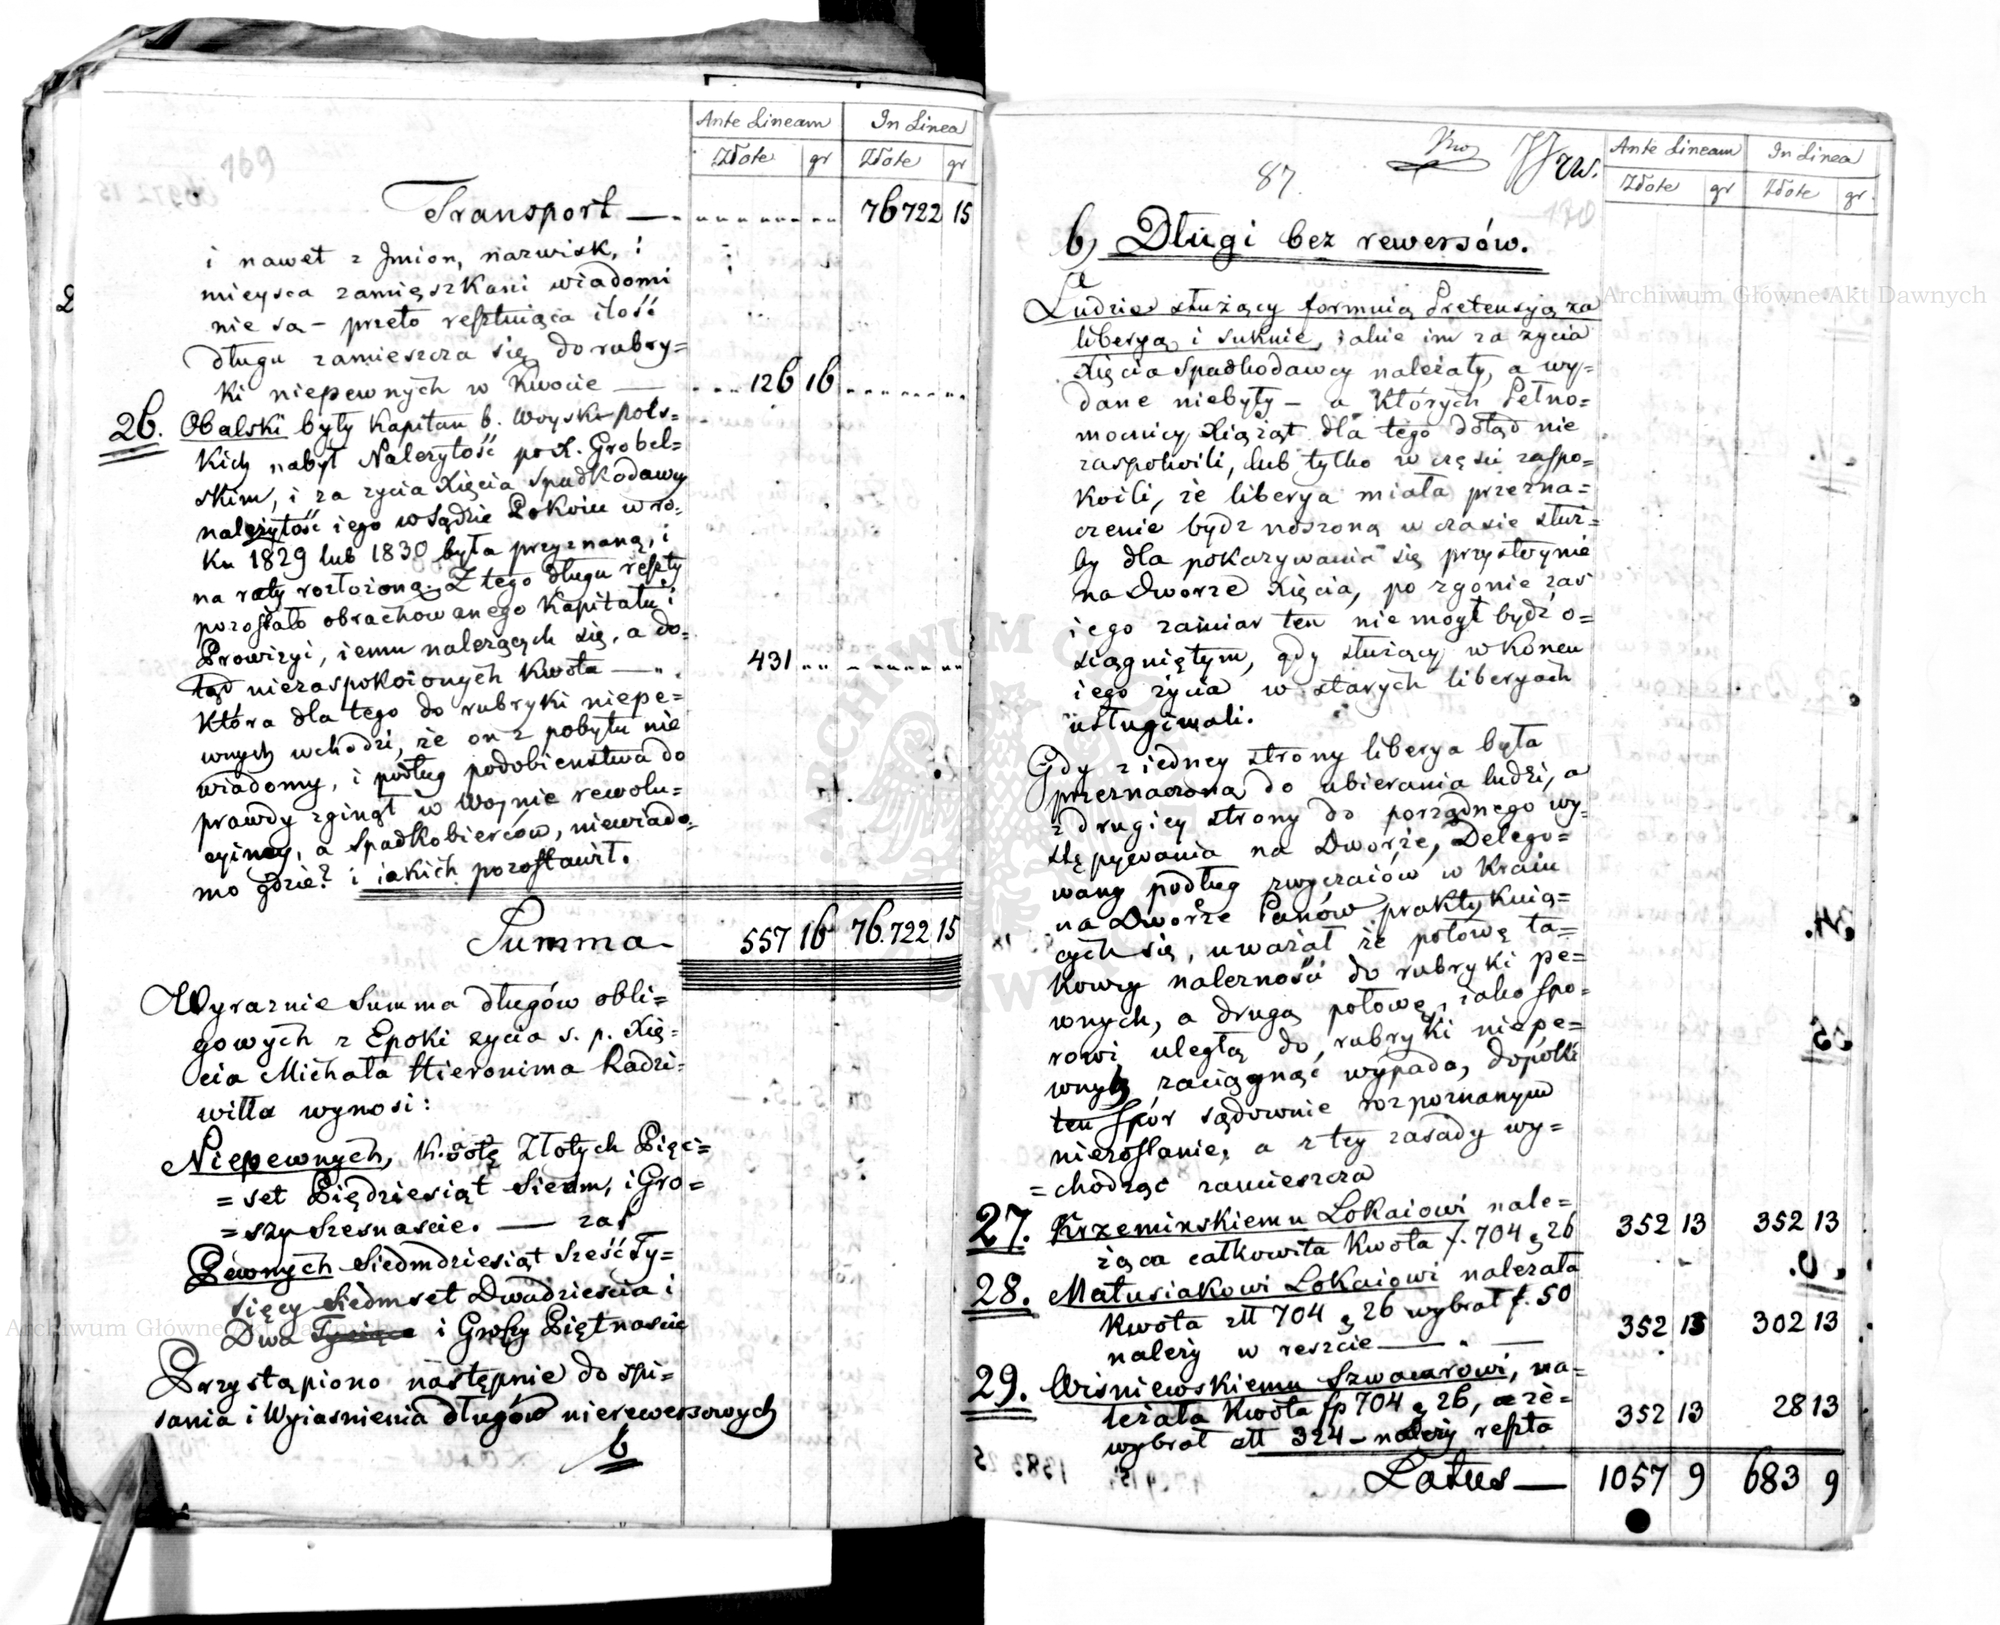 169
Ante Lineam In Linea
Złote gr Złote gr
Transport — 76722 15
i nawet z Jmion, nazwisk, i
mieysca zamięszkani wiadomi
nie są – przeto resztuiąca ilość
długu zamieszcza się do rubry=
ki niepewnych w kwocie — 126 16
26. Obalski były Kapitan b. Woysk pols=
kich nabył Należytość po X. Grobel=
skim, i za zycia Xięcia Spadkodawcy
należytość iego w Sądzie Pokoiu w ro=
ku 1829 lub 1830 była przyznaną, i
na raty rozłożoną. Z tego długu reszty
pozostało obrachowanego Kapitału i
Prowizyi, iemu nalezących się, a do=
tąd niezaspokoionych kwota — 431
która dla tego do rubryki niepe=
wnych wchodzi, że on z pobytu nie
wiadomy, i podług podobienstwa do
prawdy zginął w Woynie rewolu=
cyiney, a Spadkobierców, niewiado=
mo gdzie? i iakich pozostawił.
Summa 557 16 76.722 15
Wyraznie Summa długów obli=
gowych z Epoki zycia s. p. Xię=
cia Michała Hieronima Radzi=
wiłła wynosi:
Niepewnych, Kwotę Złotych Pięć=
=set Piędziesiąt Siedm, i Gro=
=szy Szesnascie. — zaś
Pewnych Siedmdziesiąt Sześć Ty=
sięcy Siedmset Dwadzieścia i
Dwa Tysiące i Groszy Piętnascie
Przystąpiono następnie do spi=
sania i Wyiasnienia długów nierewersowych
b
87.
170
Ante Lineam In Linea
Złote gr Złote gr.
b) Długi bez rewersów.
a
Ludzie służący formuią Pretensyą za
liberyą i suknie, iakie im za zycia
Xięcia Spadkodawcy należały, a wy=
dane niebyły – a których Pełno=
mocnicy Xiążąt dla tego dotąd nie
zaspokoili, lub tylko w części zaspo=
koili, że liberya miała przezna=
czenie bydz noszoną w czasie służ=
by dla pokazywania się przystoynie
na Dworze Xięcia, po zgonie zaś
iego zamiar ten nie mogł bydź o=
siągniętym, gdy służący w końcu
iego życia w starych liberyach
usługiwali.
Gdy z iedney strony liberya była
przeznaczoną do ubierania ludzi, a
z drugiey strony do porządnego wy=
stępywania na Dworze, Delego=
wany podług zwyczaiów w Kraiu
na Dworze Panów praktykuią=
cych się, uważał że połowę ta=
kowey nalezności do rubryki pe=
wnych, a drugą połowę, iako spo=
rowi uległą do rubryki niepe=
wnych zaciągnąć wypada, dopóki
ten spór sądownie rozpoznanym
niezostanie, a z tey zasady wy=
=chodząc zamieszcza
27. Krzeminskiemu Lokaiowi nale=
żąca całkowita Kwota f. 704 g 26 352 13 352 13
28. Matusiakowi Lokaiowi nalezała
Kwota zł 704 g 26 wybrał f. 50
należy w reszcie — 352 13 302 13
29. Wiśniewskiemu Szwaiarowi, na=
leżała Kwota fp 704 g 26, a że=
wybrał zł 324 – należy reszta 352 13 28 13
Latus — 1057 9 683 9
Archiwum Główne Akt Dawnych
Archiwum Główne Akt Dawnych
ARCHIWUM GŁÓWNE AKT DAWNYCH